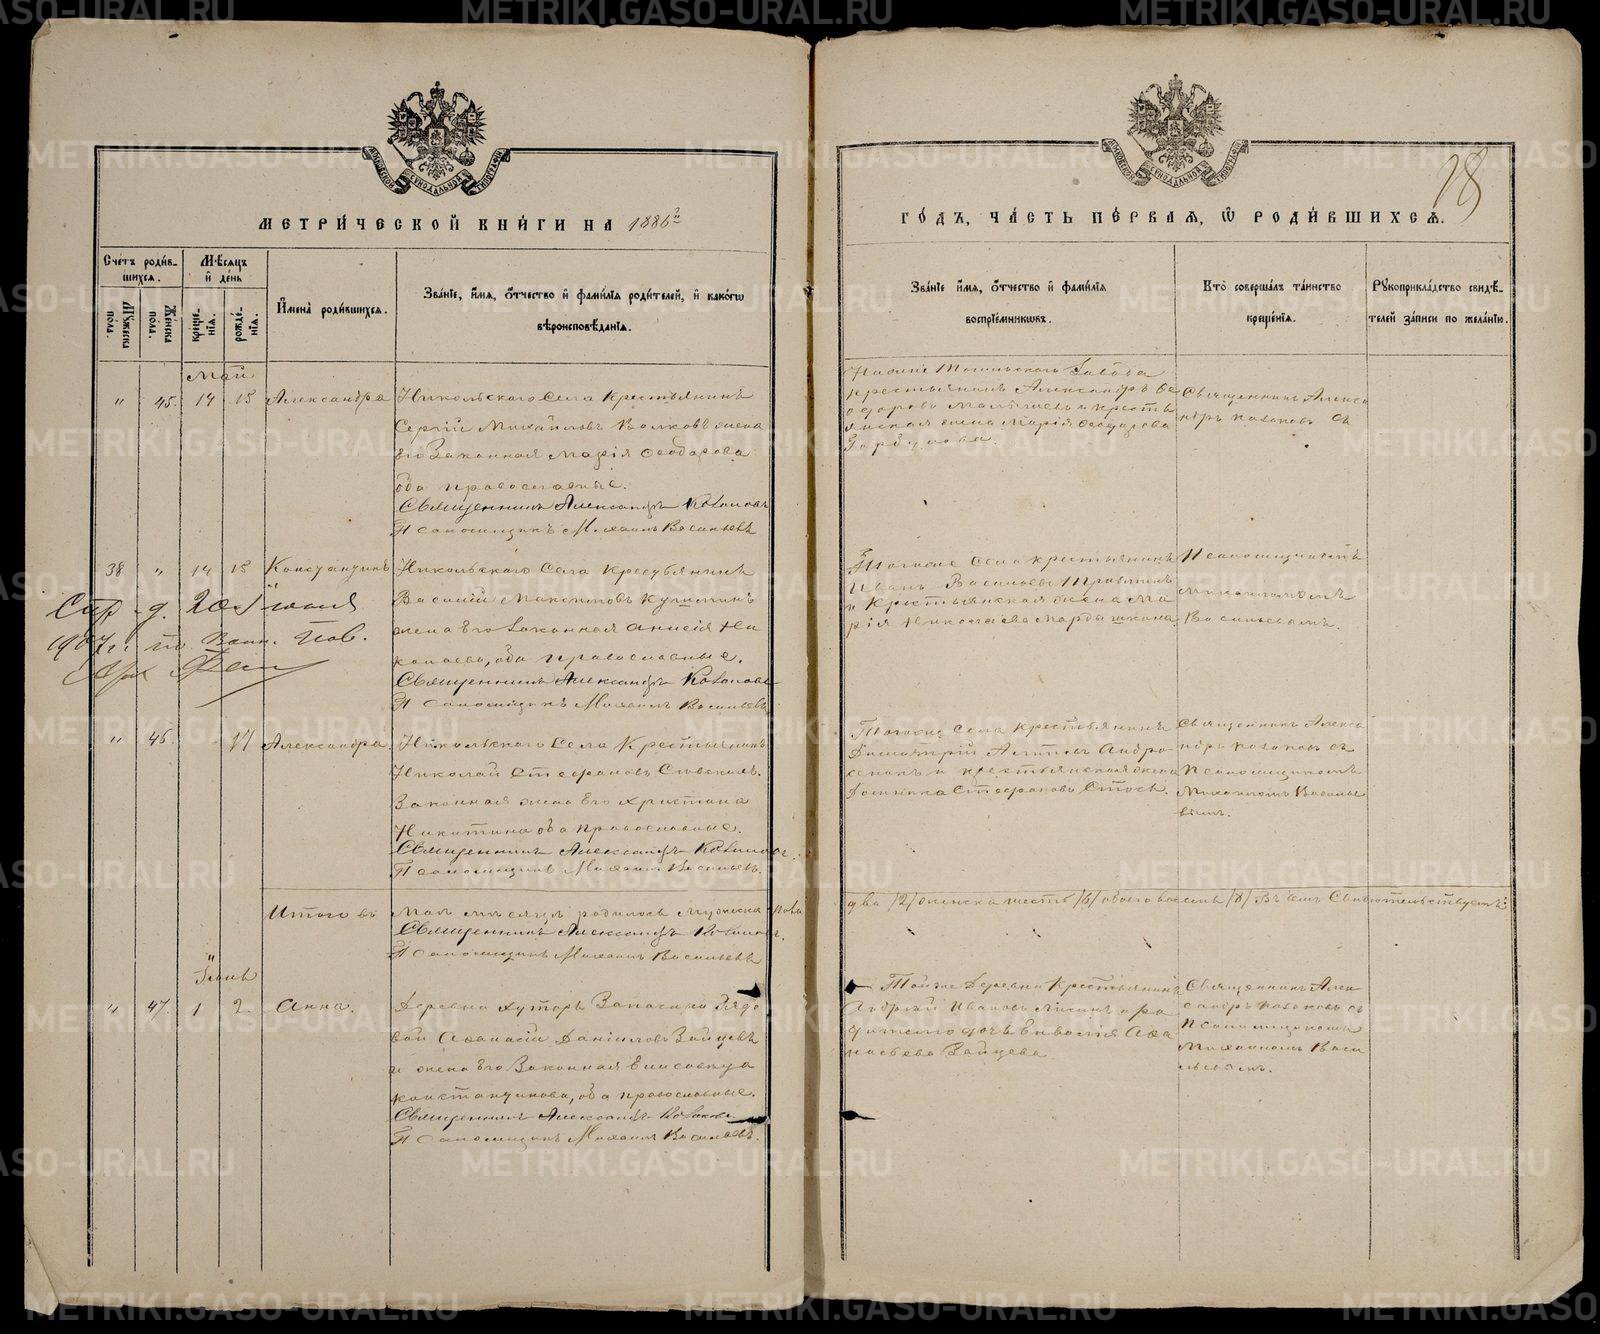 METRIKI.GASO-URAL.RU
МОСКОВСКОЙ СѴНОДАЛЬНОЙ ТИПОГРАФІИ
МЕТРИ́ЧЕСКОЙ КНИ́ГИ НА 1886 г.
Сче́тъ роди́в-
шихся.
Мꙋ́жеска
по́ла.
Же́нска
по́ла.
Мѣ́сяцъ
и҆ де́нь
креще́-
нїѧ.
рожде́-
нїѧ.
И҆мена̀ роди́вшихся.
Зва́нїе, и҆́мѧ, ѻ҆́тчество и҆ фами́лїѧ роди́телей, и҆ како́гѡ
вѣроисповѣ́данїѧ.
Май
" 45. 14 15 Александра
Никольскаго Села Крестьянинъ
Сергій Михайловъ Волковъ жена
его Законная Марія Ѳеодорова
оба православные.
Священникъ Александръ Козаковъ
Псаломщикъ Михаилъ Васильевъ
38 " 14 15 Константинъ
Никольскаго Села Крестьянинъ
Василій Максимовъ
жена Его Законная Анисія Ни
колаева, оба православные.
Священникъ Александръ Козаковъ
Псаломщикъ Михаилъ Васильевъ
д. 20 Іюня
1907 г.
" 46. 17 Александра
Никольскаго Села Крестьянинъ
Николай Стефановъ
Законная жена Его Христина
Никитина оба православные.
Священникъ Александръ Козаковъ
Псаломщикъ Михаилъ Васильевъ.
Итого въ Маѣ мѣсяцѣ родилось Мужеска пола
Священникъ Александръ Козаковъ
Псаломщикъ Михаилъ Васильевъ
Іюнь
" 47. 1 2 Анна.
Деревни Хуторъ Запасный Рядо
вой Аѳанасій Даніиловъ Зайцевъ
и жена Его Законная Елисавета
Константинова, оба православные.
Священникъ Александръ Козаковъ
Псаломщикъ Михаилъ Васильевъ.
МОСКОВСКОЙ СѴНОДАЛЬНОЙ ТИПОГРАФІИ
18
ГО́ДЪ, ЧА́СТЬ ПЕ́РВАѦ, Ѡ҆ РОДИ́ВШИХСѦ.
Зва́нїе и҆́мѧ, ѻ҆́тчество и҆ фами́лїѧ
воспрїе́мникѡвъ.
Кто̀ соверша́лъ та́инство
креще́нїѧ.
Рꙋкоприкла́дство свидѣ́-
телей за́писи по жела́нїю.
Завода
крестьянинъ Александръ Ѳе
одоровъ и кресть
янская жена Марія Ѳеодорова
Горбунова.
Священникъ Алекса
ндръ Козаковъ съ
Тогоже Села крестьянинъ
Иванъ Васильевъ
и Крестьянская жена Ма
рія Николаева
Псаломщикомъ
Михаиломъ
Васильевымъ.
Тогоже Села Крестьянинъ
Димитрій Андро
и крестьянская жена
Стефанова
Священникъ Алекса
ндръ Козаковъ съ
Псаломщикомъ
Михаиломъ Василье
вымъ.
два /2/ женска шесть /6/ обоего восемь /8/ Въ чемъ Свидѣтельствуемъ:
Той же Деревни Крестьянинъ
Андрей Ивановъ
дочь Евѳимія Аѳа
насьева Зайцева
Священникъ Алек
сандръ Козаковъ съ
Псаломщикомъ
Михаиломъ Васи
льевымъ.